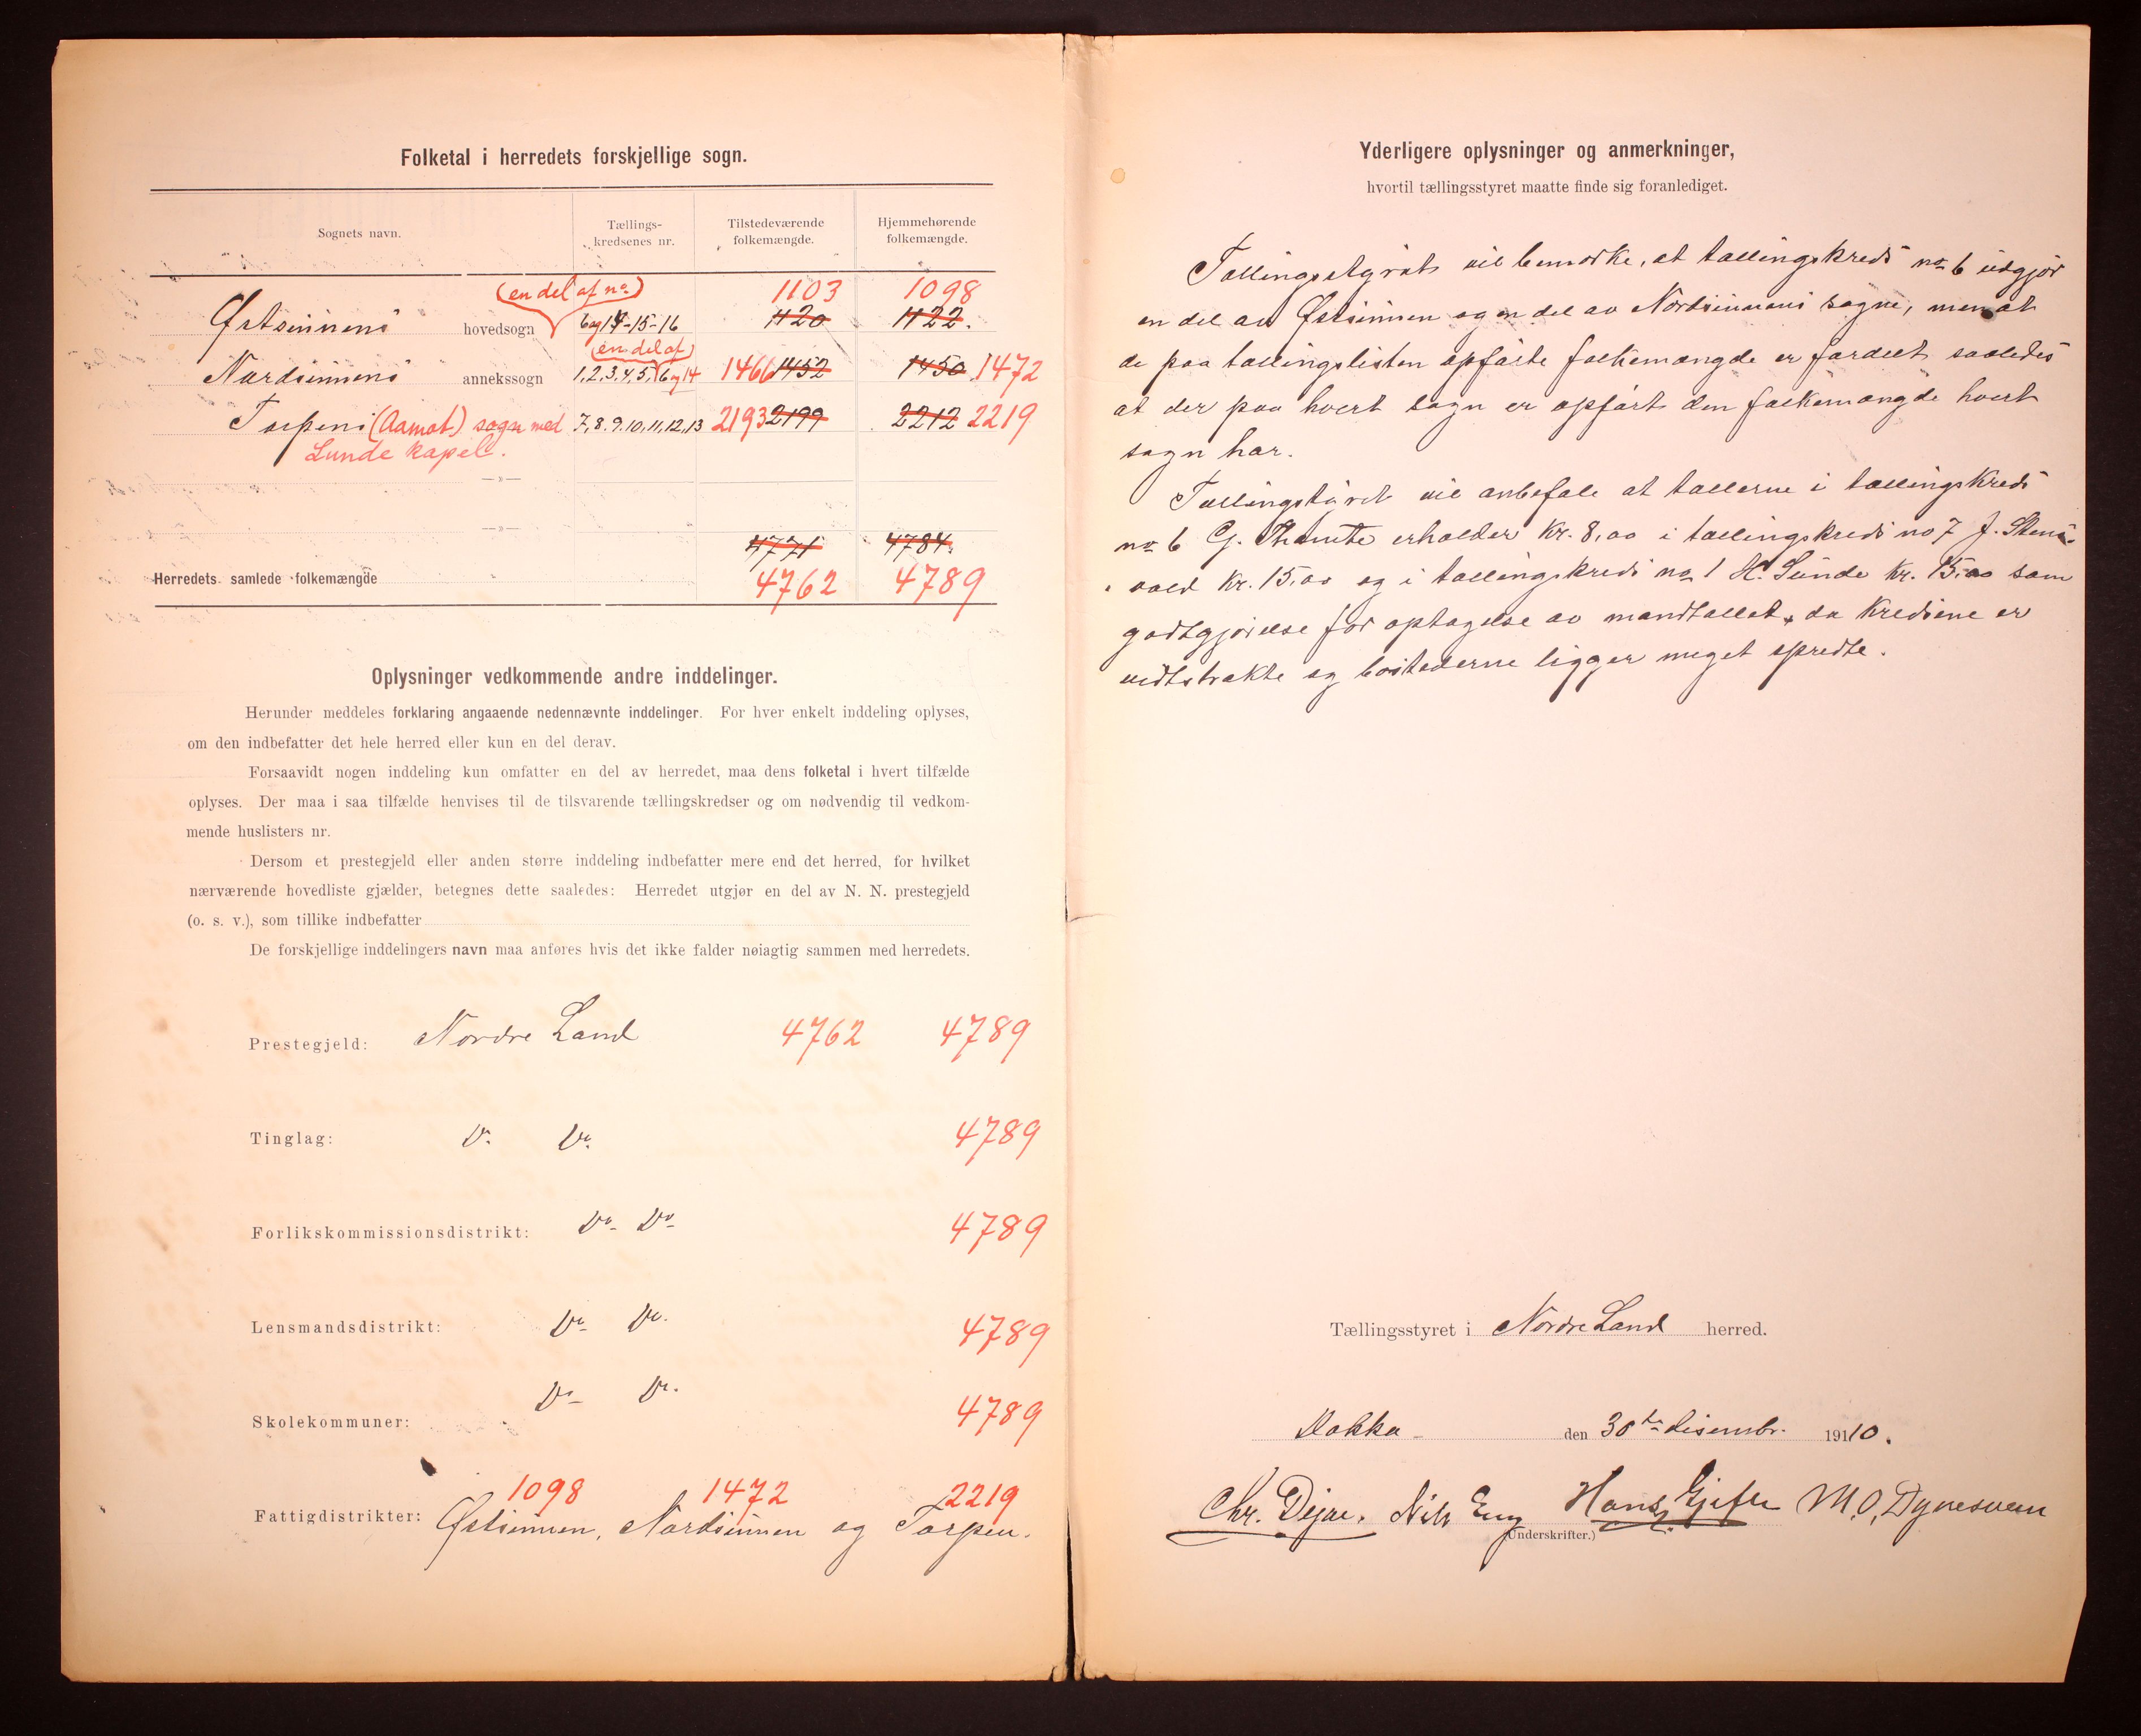 Folketal i herredets forskjellige sogn.
Sognets navn.
Tællings-
kredsenes nr.
Tilstedeværende
folkemængde.
Hjemmehørende
folkemængde.
(en del af no)
1103 1098
Østsinnens hovedsogn 6 og 14-15-16 1120 1122.
(en del af)
Nordsinnens annekssogn 1,2,3,4,5, 6 og 14 1466 1452 1450 1472
Torpens (Aamot) sogn med 7,8,9,10,11,12,13 2193 2199 2212 2219
Lunde kapel.
—»—
—»—
4771 4784.
Herredets samlede folkemængde 4762 4789
Oplysninger vedkommende andre inddelinger.
Herunder meddeles forklaring angaaende nedennævnte inddelinger. For hver enkelt inddeling oplyses,
om den indbefatter det hele herred eller kun en del derav.
Forsaavidt nogen inddeling kun omfatter en del av herredet, maa dens folketal i hvert tilfælde
oplyses. Der maa i saa tilfælde henvises til de tilsvarende tællingskredser og om nødvendig til vedkom-
mende huslisters nr.
Dersom et prestegjeld eller anden større inddeling indbefatter mere end det herred, for hvilket
nærværende hovedliste gjælder, betegnes dette saaledes: Herredet utgjør en del av N. N. prestegjeld
(o. s. v.), som tillike indbefatter
De forskjellige inddelingers navn maa anføres hvis det ikke falder nøiagtig sammen med herredets.
Prestegjeld: Nordre Land 4762 4789
Tinglag: Do. Do. 4789
Forlikskommissionsdistrikt: Do Do 4789
Lensmandsdistrikt: Do Do. 4789
Skolekommuner: Do Do. 4789
1098 1472 2219
Fattigdistrikter: Østsinnen, Nordsinnen og Torpen.
Yderligere oplysninger og anmerkninger,
hvortil tællingsstyret maatte finde sig foranlediget.
Tællingsstyret vil bemærke, at tællingskreds no 6 udgjør
en del av Østsinnen og en del av Nordsinnens sogne, men at
de paa tællingslisten opførte folkemængde er fordelt saaledes
at der paa hvert sogn er opført den folkemængde hvert
sogn har.
Tællingstyret vil anbefale at tællerne i tællingskreds
no 6 G. erholder kr. 8,00 i tællingskreds no 7 J. Stens-
vold kr. 15,00 og i tællingskreds no 1 H. Lunde kr. 15,00 som
godtgjørelse for optagelse av mandtallet, da kredsene er
vidtstrakte og bostederne ligger meget spredte.
Tællingsstyret i Nordre Land herred.
Dokka den 30te disembr. 1910.
Chr. Nils Eng Hans M. O. Dynesveen
(Underskrifter.)